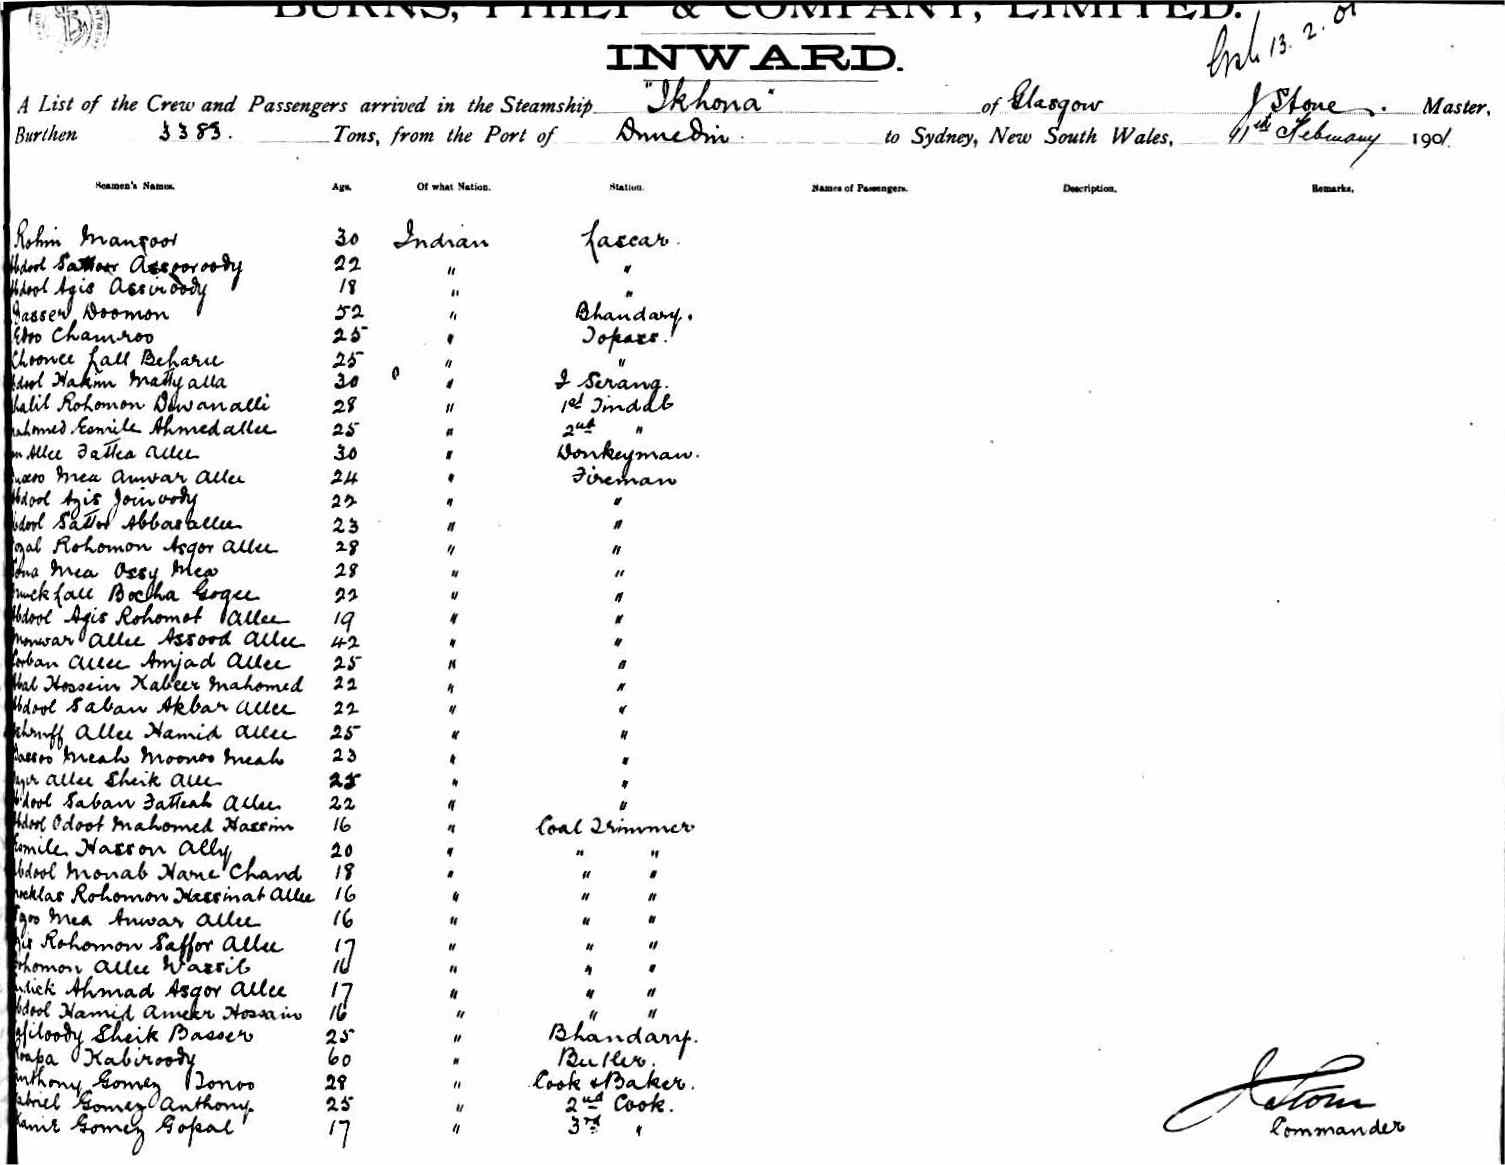 BURNS, PHILP & COMPANY, LIMITED.
13. 2. 01
INWARD.
A List of the Crew and Passengers arrived in the Steamship "Ikhona" of Glasgow J Stone. Master,
Burthen 3383. Tons, from the Port of Dunedin to Sydney, New South Wales, 11th February 1901.
Seamen's Names. Age. Of what Nation. Station. Names of Passengers. Description. Remarks.
Rohim Mansoor 30 Indian Lascar.
Abdool Sattar Assooroody 22 " "
Abdool Azis Assiroody 18 " "
Basser Doomon 52 " Bhandary.
Edoo Chamroo 25 " Topass.
Choonee Lall Beharee 25 " "
Abdool Hakim Matty alla 30 " I Serang.
Rohomon Dewan alli 28 " 1st Tindal
Mahomed Esmile Ahmed allee 25 " 2nd "
Allee Fattea allee 30 " Donkeyman.
Mea Anwar Allee 24 " Fireman
Abdool Azis Joinoody 22 " "
Abdool Sattor Abbas allee 23 " "
Rohomon Asgor Allee 28 " "
Sona Mea Ossy Mea 28 " "
Lall Bocha Gogee 22 " "
Abdool Azis Rohomot Allee 19 " "
Monwar Allee Assood Allee 42 " "
Korban Allee Amjad Allee 25 " "
Hossein Kabeer Mahomed 22 " "
Abdool Saban Akbar Allee 22 " "
Allee Hamid Allee 25 " "
Meah Moonoo Meah 23 " "
Allee Sheik Allee 25 " "
Abdool Saban Fatteah Allee 22 " "
Abdool Odoot Mahomed Hassim 16 " Coal Trimmer
Esmile Hasson Ally 20 " " "
Abdool Monab Name Chand 18 " " "
Rohomon Hassinat Allee 16 " " "
Mea Anwar Allee 16 " " "
Rohomon Saffor Allee 17 " " "
Rohomon Allee Wassil 16 " " "
Ahmad Asgor Allee 17 " " "
Abdool Hamid Ameer Hossain 16 " " "
Sheik Basser 25 " Bhandary.
Kabiroody 60 " Butler.
Anthony Gomez Donoo 28 " Cook & Baker.
Gabriel Gomez Anthony. 25 " 2nd Cook.
Gomez Gopal 17 " 3rd "
J Stone
Commander